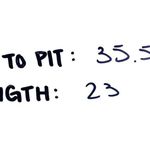 TO PIT: 35.5
NGTH: 23